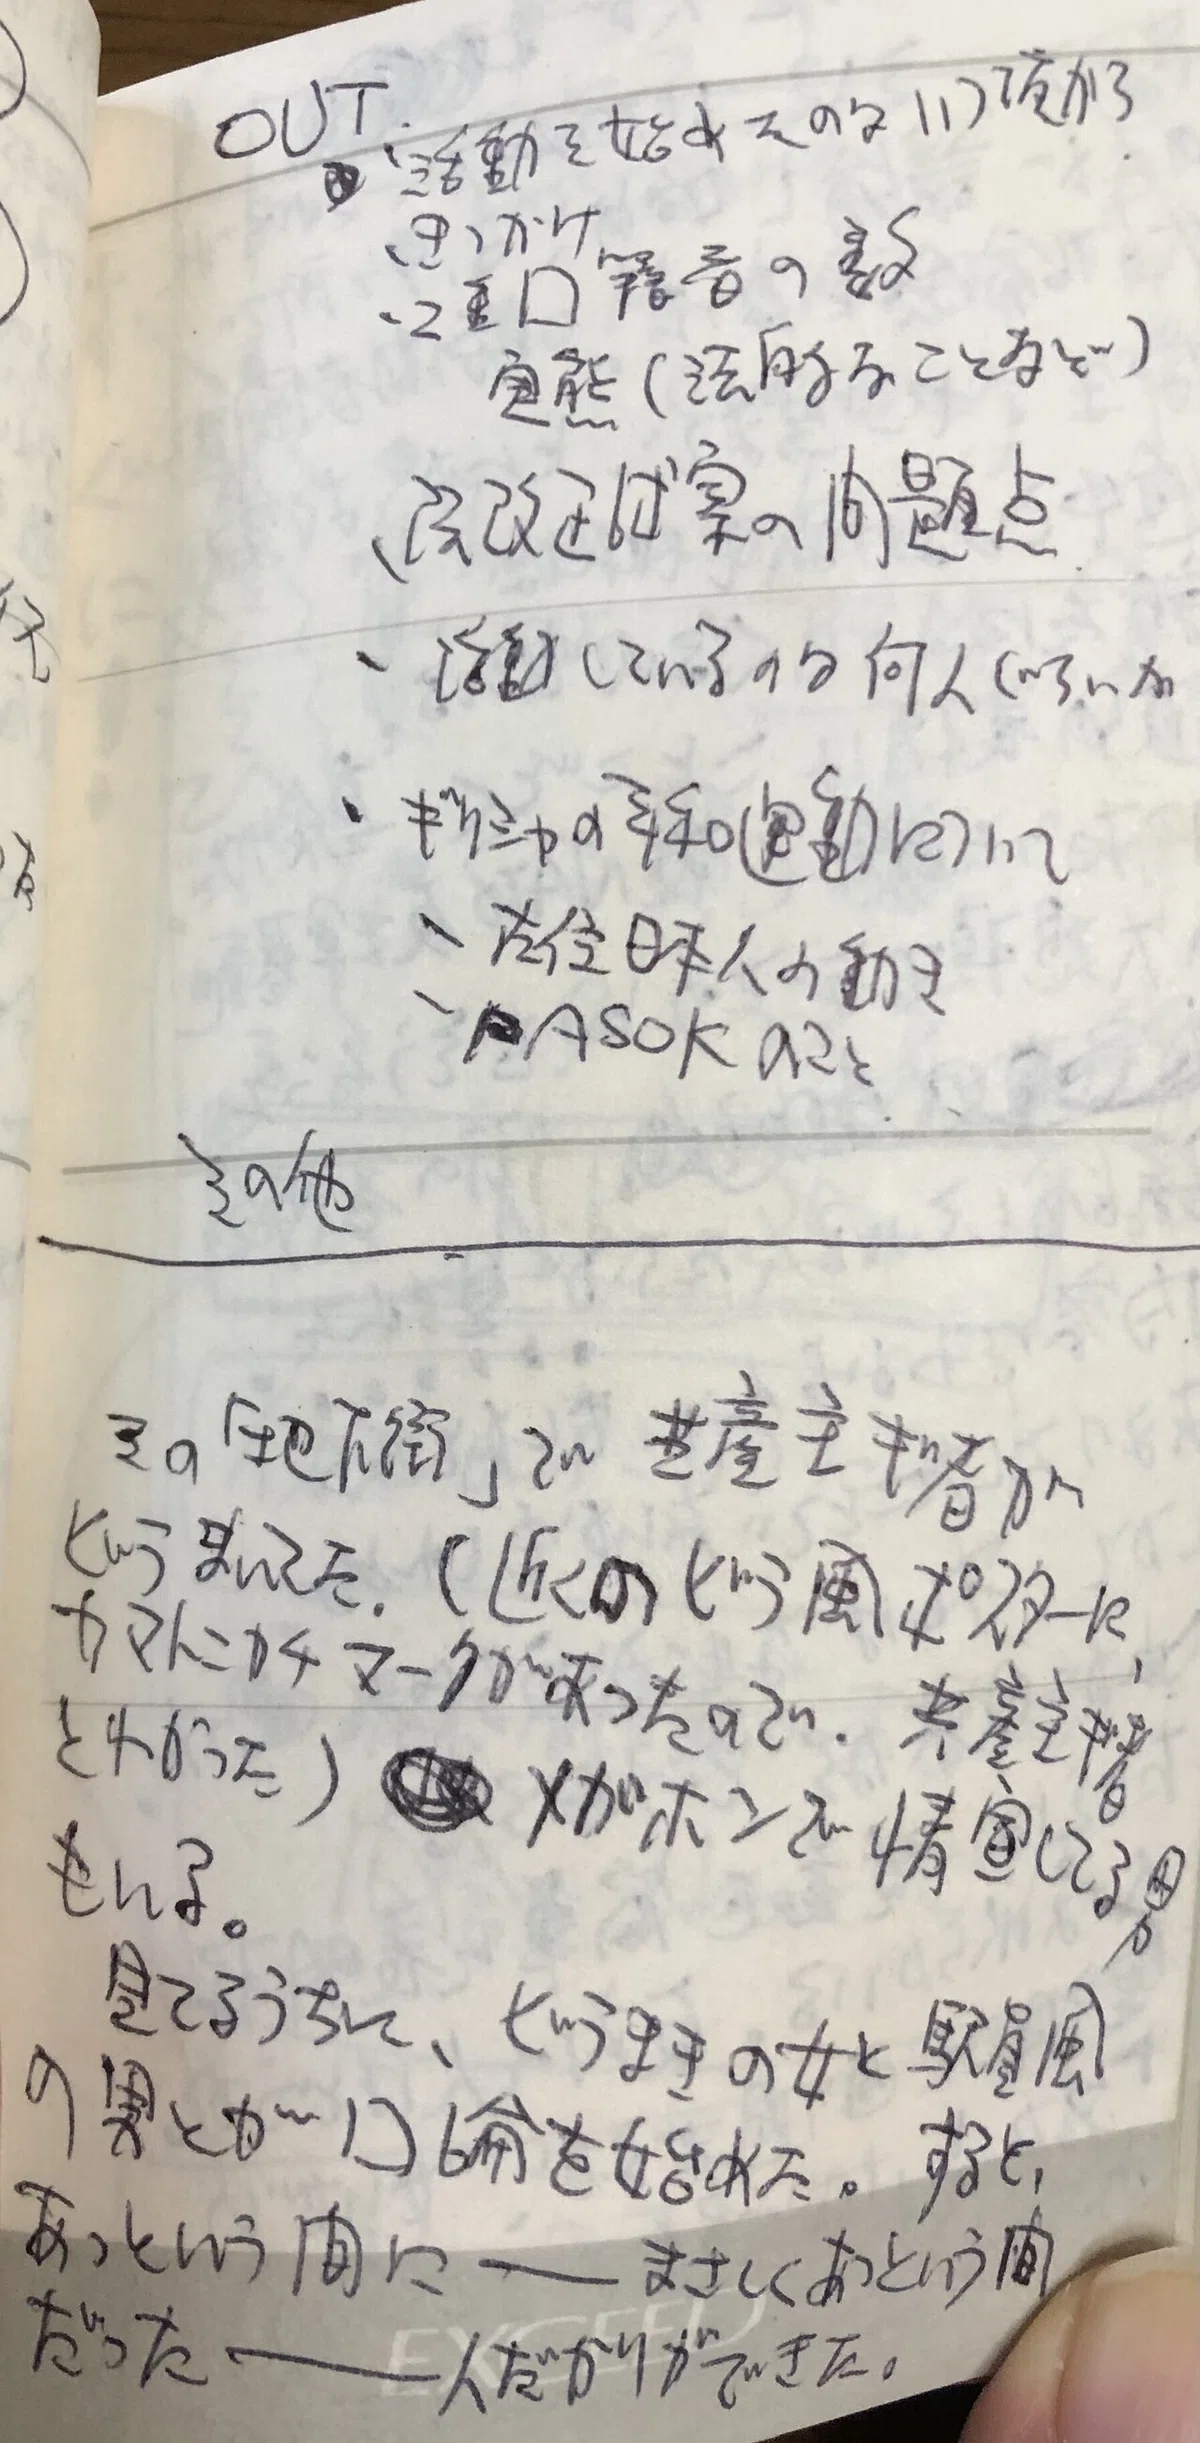 OUT
・活動を始めたのはいつ頃から
・きっかけ
・2重口障害者の数
実態(法的なことなど)
・改正法案の問題点
・活動しているのは何人ぐらいか
・ギリシャの平和運動について
・在住日本人の動き
・PASOKのこと
その他
その「地下街」で共産主ギ者が
ビラまいてた。(近くのビラ風ポスターに、
カマトンカチマークがあったので、共産主ギ者
とわかった) メガホンで情宣してる男
もいる。
見てるうちに、ビラまきの女と駅員風
の男とが口論を始めた。すると、
あっという間に――まさしくあっという間
だった――人だかりができた。
EXCEED